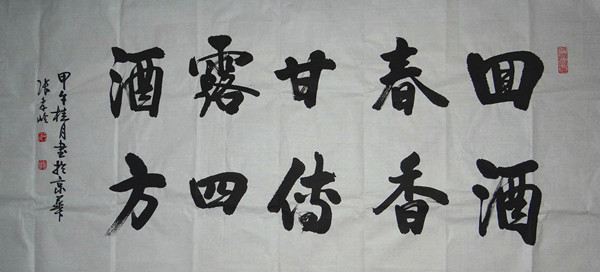 回春甘露酒
酒香傳四方
甲午桂月書於京華
張